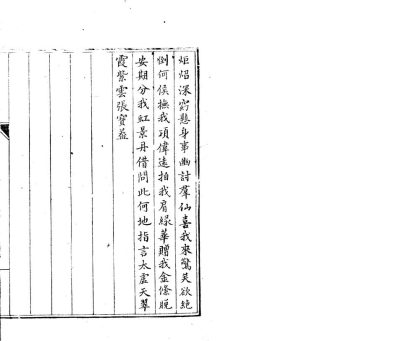 炬焰深窈懸身事幽討羣仙喜我來驚笑欲絕
倒何侯撫我項偉遠拍我肩綠華贈我金條脫
安期分我紅景丹借問此何地指言太虛天翠
霞紫雲張寶蓋